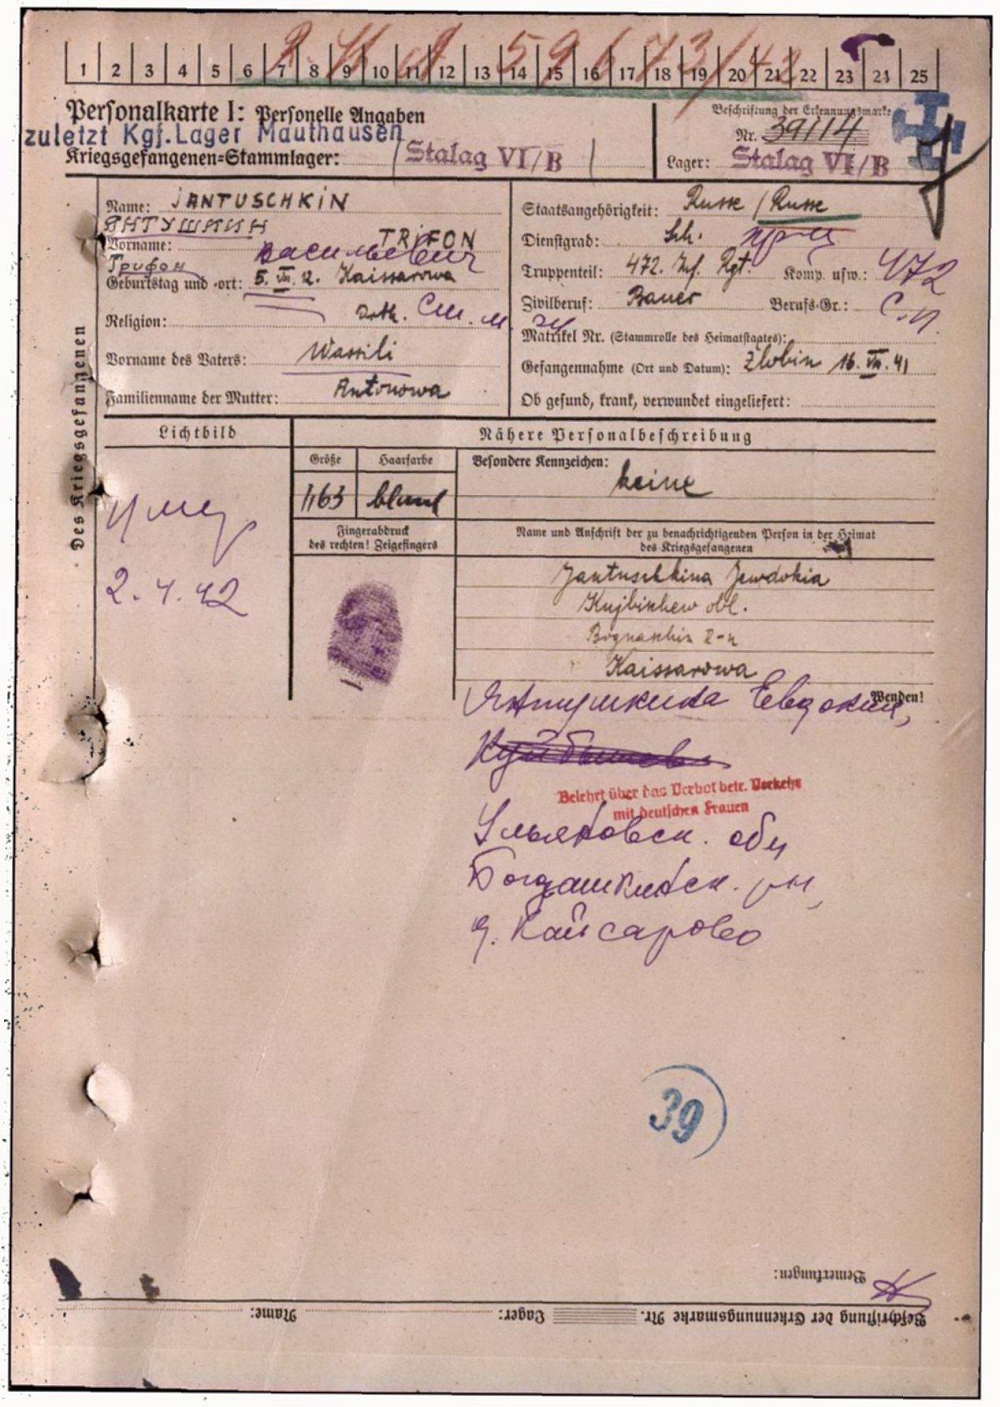 1 2 3 4 5 6 7 8 9 10 11 12 13 14 15 16 17 18 19 20 21 22 23 24 25
Personalkarte I: Personelle Angaben
zuletzt Kgf.Lager Mauthausen
Kriegsgefangenen=Stammlager: Stalag VI/B
Beschriftung der Erkennungsmarke
Nr. 39114
Lager: Stalag VI/B
Des Kriegsgefangenen
Name: JANTUSCHKIN
ЯНТУШКИН
Vorname: TRIFON
Трифон Васильевич
Geburtstag und -ort: 5. VII. 2. Kaissarowa
Religion: Orth.
Vorname des Vaters: Wassili
Familienname der Mutter: Antonowa
Staatsangehörigkeit: Russe / Russe
Dienstgrad: Sch.
Truppenteil: 472. Inf. Rgt. Komp. usw.: 472
Zivilberuf: Bauer Berufs-Gr.: с.п.
Matrikel Nr. (Stammrolle des Heimatstaates):
Gefangennahme (Ort und Datum): Zlobin 16. VII. 41
Ob gesund, krank, verwundet eingeliefert:
Lichtbild
Nähere Personalbeschreibung
Größe Haarfarbe Besondere Kennzeichen:
1,63 blond keine
Fingerabdruck
des rechten! Zeigefingers
Name und Anschrift der zu benachrichtigenden Person in der Heimat
des Kriegsgefangenen
умер
2.4.42
Jantuschkina Jewdokia
Kujbischew obl.
Kaissarowa
Wenden!
Янтушкина Евдокия,
Куйбышевс
Belehrt über das Verbot betr. Verkehr
mit deutschen Frauen
Ульяновск. обл
Богдашкинск. рн,
д. Кайсарово
39
Bemerkungen:
Beschriftung der Erkennungsmarke Nr. Lager: Name: